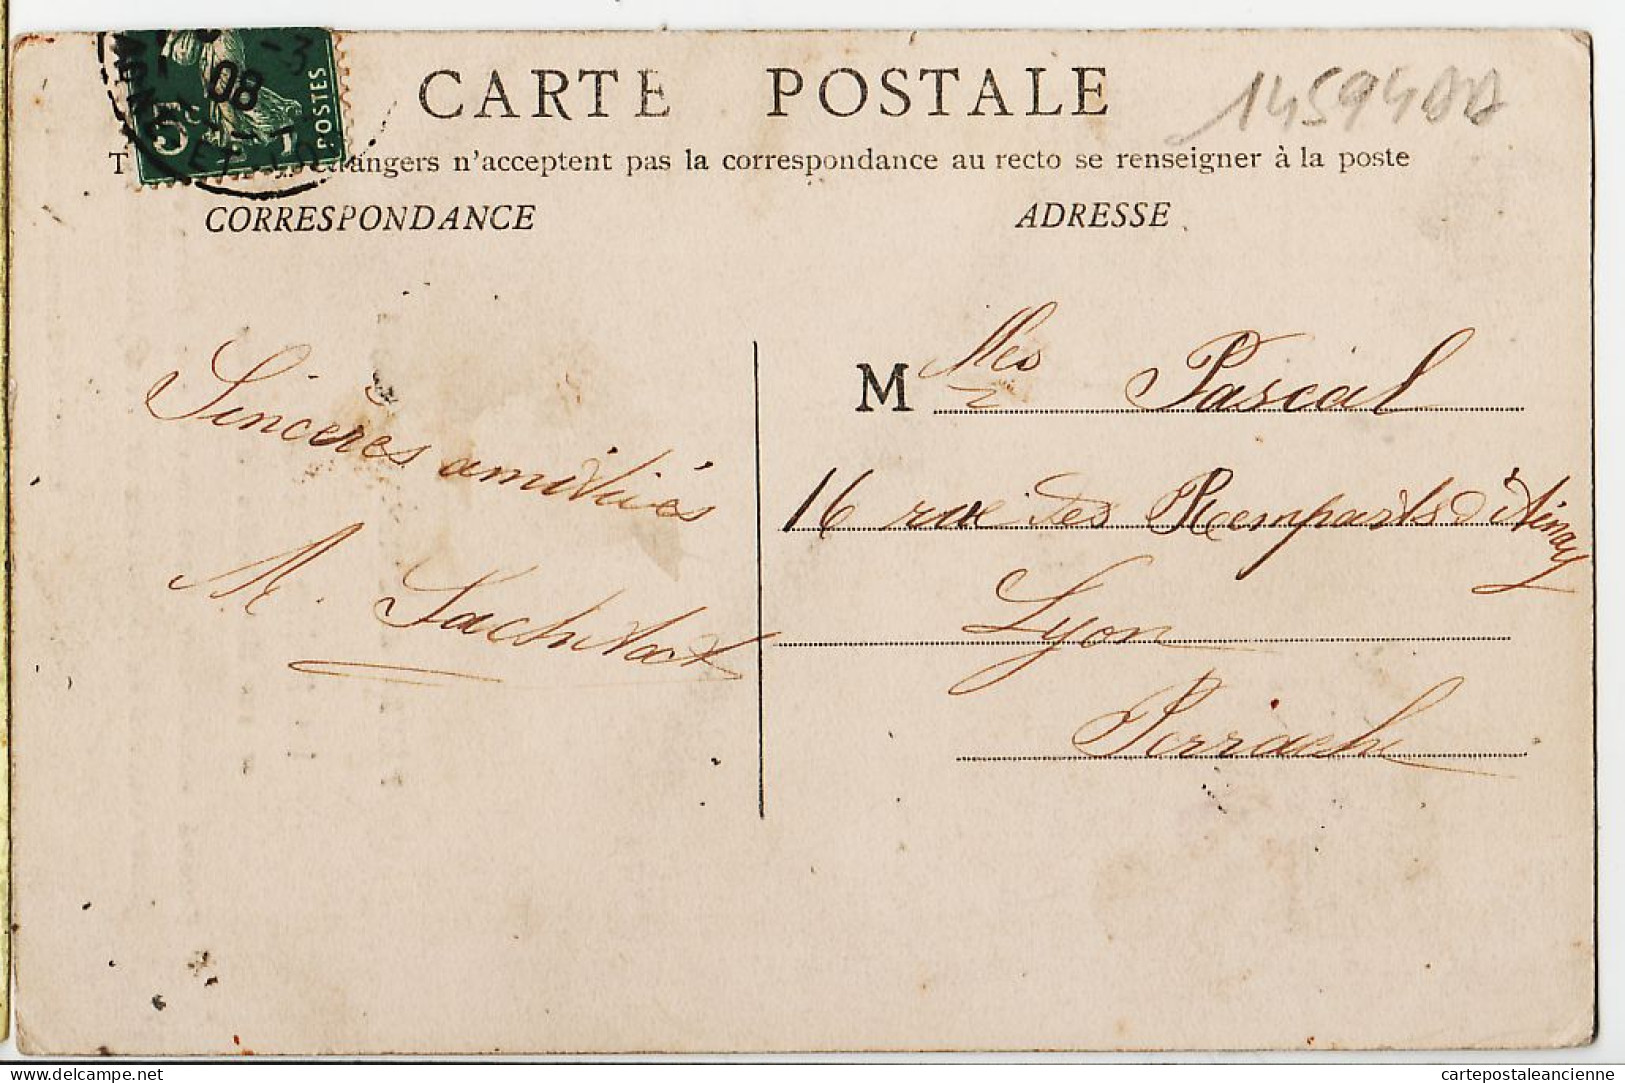 08 -3
5c POSTES
CARTE POSTALE
14594AA
T étrangers n'acceptent pas la correspondance au recto se renseigner à la poste
CORRESPONDANCE
ADRESSE
Sincères amitiés
M.
M lles Pascal
16 rue des Remparts d'Ainay
Lyon
Perrache
delcampe.net
cartepostaleancienne